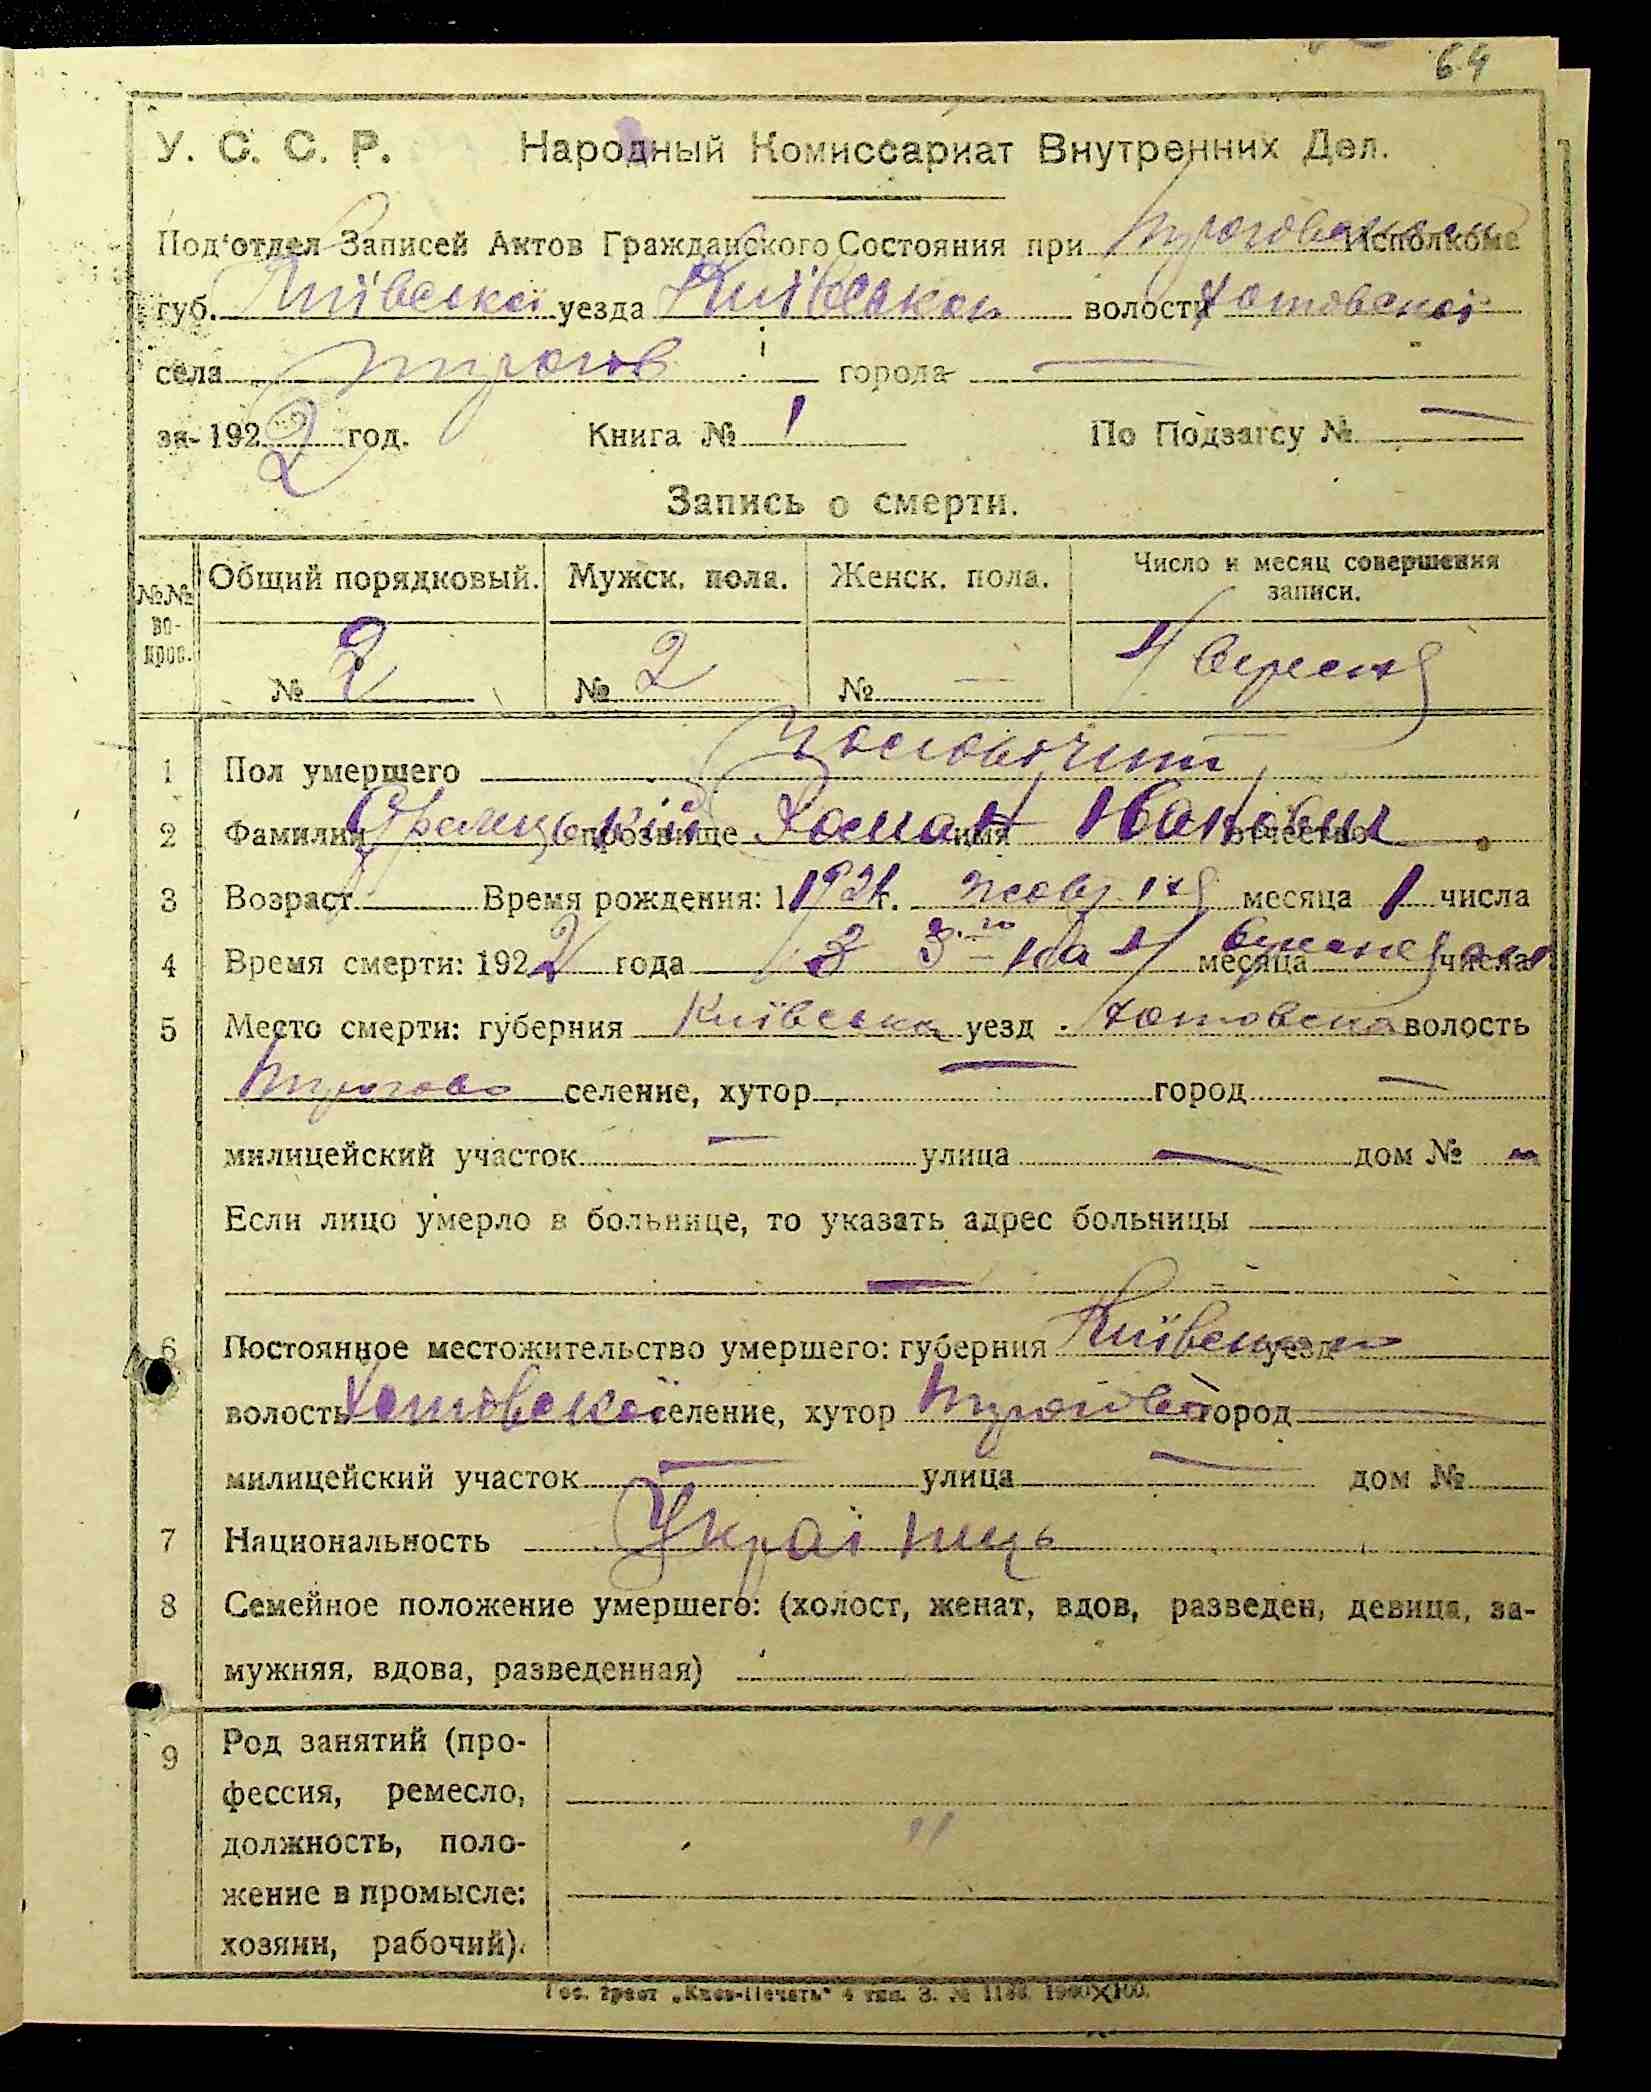 64
У. С. С. Р. Народный Комиссариат Внутренних Дел.
Под'отдел Записей Актов Гражданского Состояния при Исполкоме
губ. Київської уезда Київськои волости Хотовської
села Пирогов города —
за 1922 год. Книга № 1 По Подзагсу № —
Запись о смерти.
№№ вопрос. Общий порядковый. Мужск. пола. Женск. пола. Число и месяц совершения записи.
№ 2 № 2 № — 4 вересня
1 Пол умершего чоловічий
2 Фамилия прозвище Роман имя Иванович отчество
3 Возраст Время рождения: 1921 г. жовтня месяца 1 числа
4 Время смерти: 1922 года 3 3 на 4 месяца вересня числа
5 Место смерти: губерния Київська уезд Хотовська волость
Пирогово селение, хутор — город —
милицейский участок — улица — дом № —
Если лицо умерло в больнице, то указать адрес больницы
—
6 Постоянное местожительство умершего: губерния Київська уезд
волость Хотовської селение, хутор Пирогово город —
милицейский участок — улица — дом №
7 Национальность Украінець
8 Семейное положение умершего: (холост, женат, вдов, разведен, девица, за-
мужняя, вдова, разведенная)
9 Род занятий (про-
фессия, ремесло,
должность, поло- "
жение в промысле:
хозяин, рабочий).
Гос. Трест „Киев-Печать" 4 тип. З. №